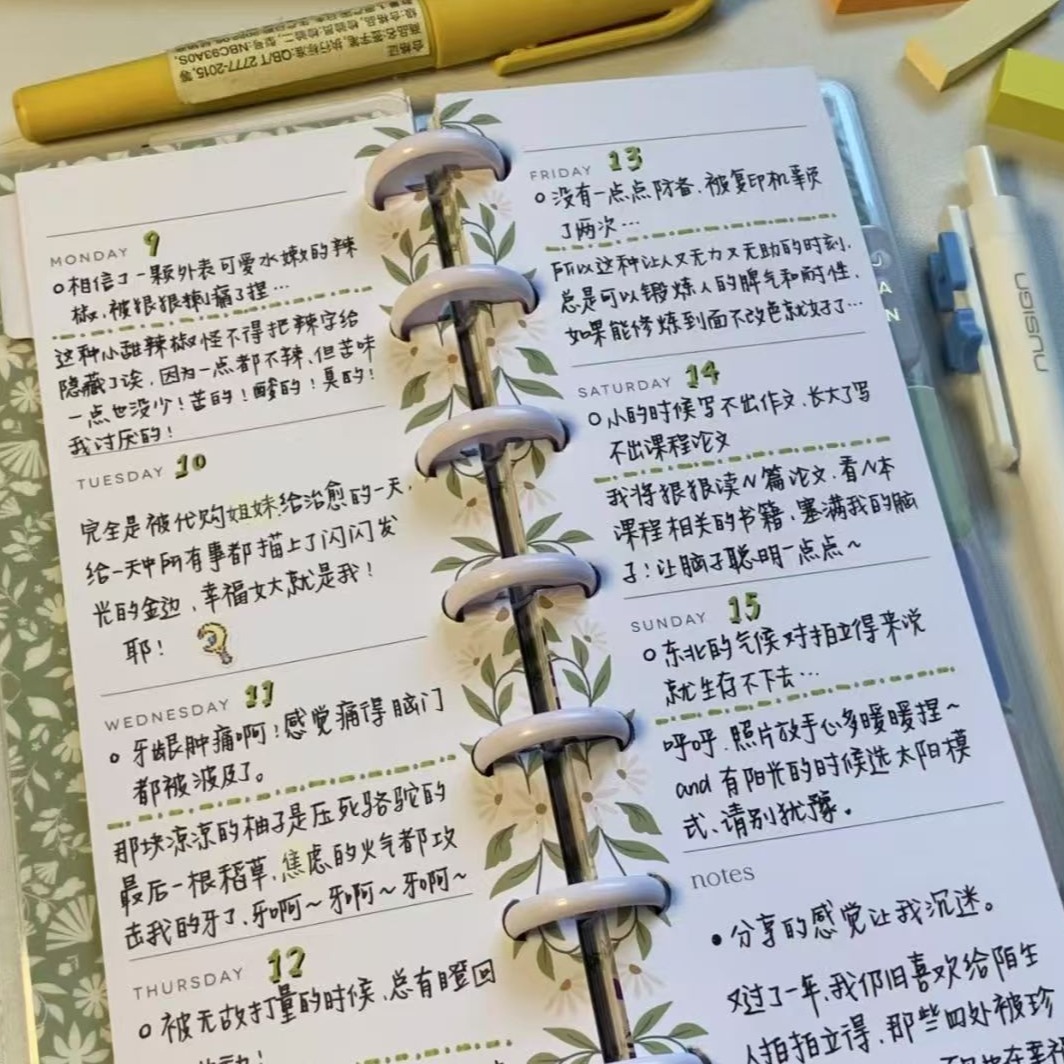 合格证
商品名:签字笔,执行标准:QB/T 2777-2015,等
级:合格品,检验员:检验二,型号:NBC93A0S,
MONDAY 9
相信了一颗外表可爱水嫩的辣
椒,被狠狠辣痛了捏…
这种小甜辣椒怪不得把辣字给
隐藏了诶,因为一点都不辣,但苦味
一点也没少!苦的!酸的!臭的!
我讨厌的!
TUESDAY 10
完全是被代购姐妹给治愈的一天,
给一天中所有事都描上了闪闪发
光的金边,幸福女大就是我!
耶!
WEDNESDAY 11
牙龈肿痛啊!感觉痛得脑门
都被波及了。
那块凉凉的柚子是压死骆驼的
最后一根稻草,焦虑的火气都攻
击我的牙了,牙啊~牙啊~牙啊~
THURSDAY 12
被无故打量的时候,总有瞪回
FRIDAY 13
没有一点点防备,被复印机辜负
了两次…
所以这种让人又无力又无助的时刻,
总是可以锻炼人的脾气和耐性,
如果能修炼到面不改色就好了…
SATURDAY 14
小的时候写不出作文,长大了写
不出课程论文
我将狠狠读N篇论文,看N本
课程相关的书籍,塞满我的脑
子!让脑子聪明一点点~
SUNDAY 15
东北的气候对拍立得来说
就生存不下去…
呼呼,照片放手心多暖暖捏~
and 有阳光的时候选太阳模
式,请别犹豫。
notes
分享的感觉让我沉迷。
又过了一年,我仍旧喜欢给陌生
人拍拍立得,那些四处被珍
NUSIGN